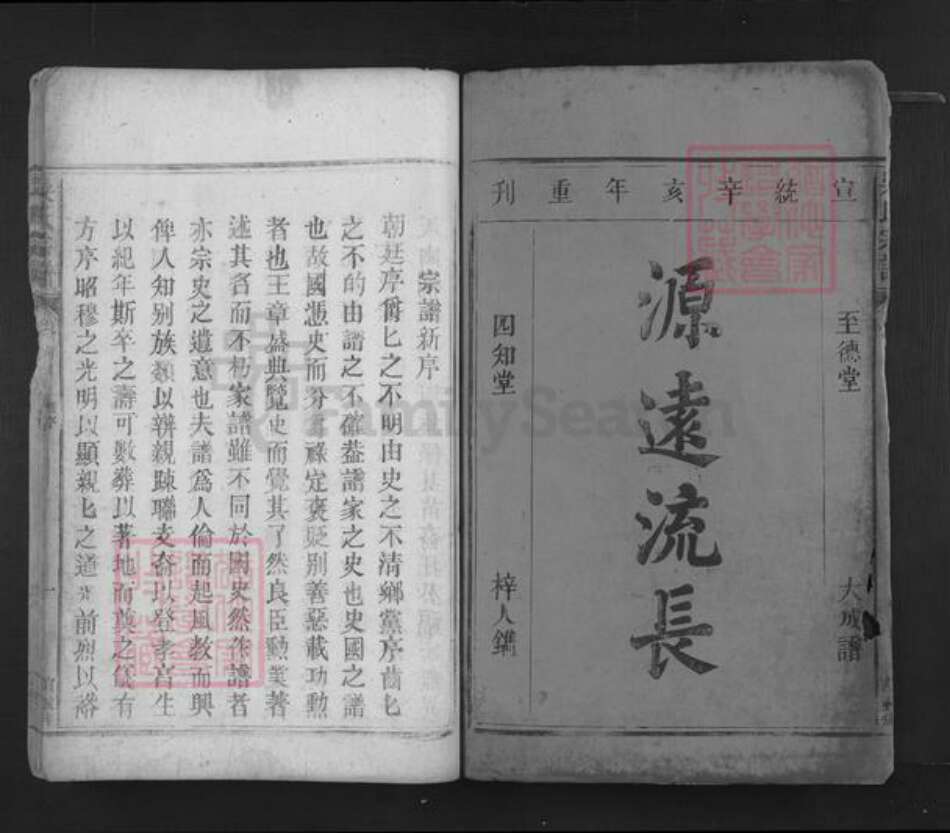 宣統辛亥年重刊
至德堂
大成譜
源遠流長
四知堂
梓人鐫
宗譜新序
朝廷序爵匕之不明由史之不清鄉黨序齒匕
之不的由譜之不確蓋譜家之史也史國之譜
也故國憑史而分爵祿定褒貶別善惡載功勲
者也王章盛典覽史而覺其了然良臣勲業著
述其名而不朽家譜雖不同於國史然作譜者
亦宗史之遺意也夫譜爲人倫而起風教而興
俾人知別族類以辨親踈聯支裔以登孝宫生
以紀年斯卒之壽可數葬以著地而奠之儀有
方序昭穆之光明以顯親匕之道光前烈以裕
FamilySearch